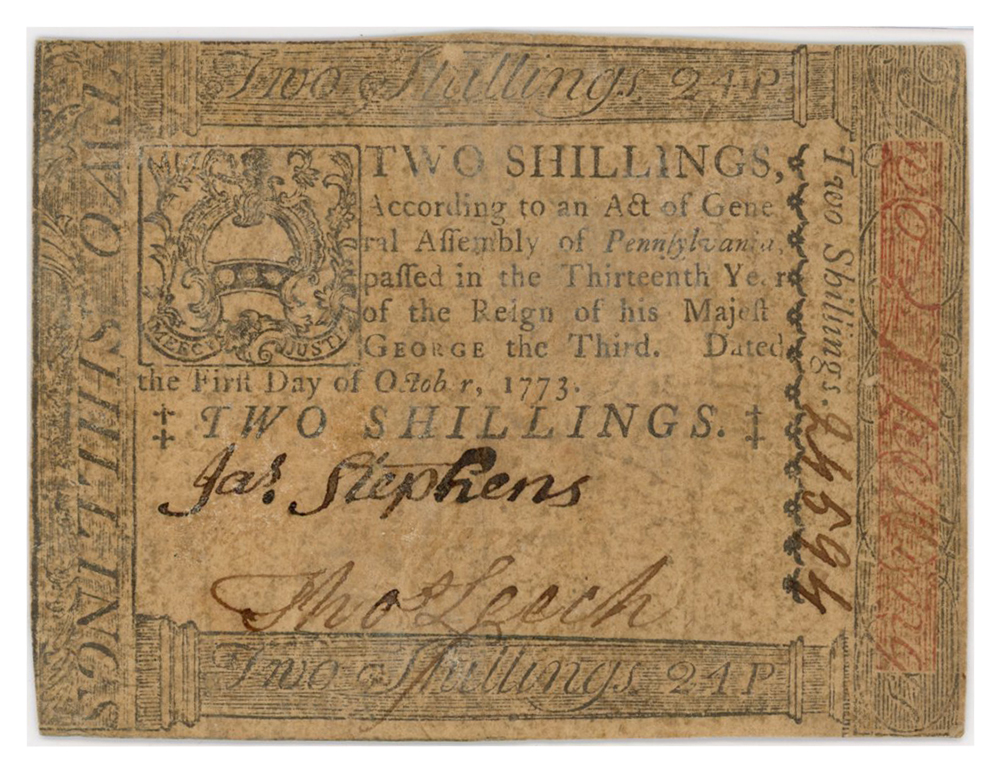 Two Shillings 24 P
TWO SHILLINGS
MERCY JUSTI
TWO SHILLINGS,
According to an Act of Gene
ral Aſſembly of Pennſylvania,
paſſed in the Thirteenth Year
of the Reign of his Majeſt
GEORGE the Third. Dated
the Firſt Day of October, 1773.
‡ TWO SHILLINGS. ‡
Jas. Stephens
Thos Leech
Two Shillings 24 P
Two Shillings.
Two Shillings